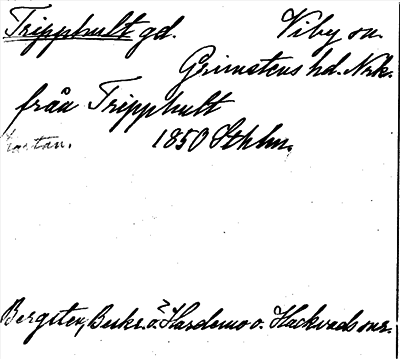 Tripphult gd. Viby sn.
Grimstens hd. Nrk.
från Tripphult
kartan. 1850 Sthlm.
Bergsten, Beskr. ö. Hardemo o. Hackvads snr.